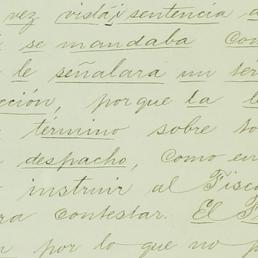 vez vista sentencia
se mandaba Con
le señalara un tér
cción, porque la l
término sobre to
despacho, como en
instruir al Fisca
ra contestar. El F
por lo que no p